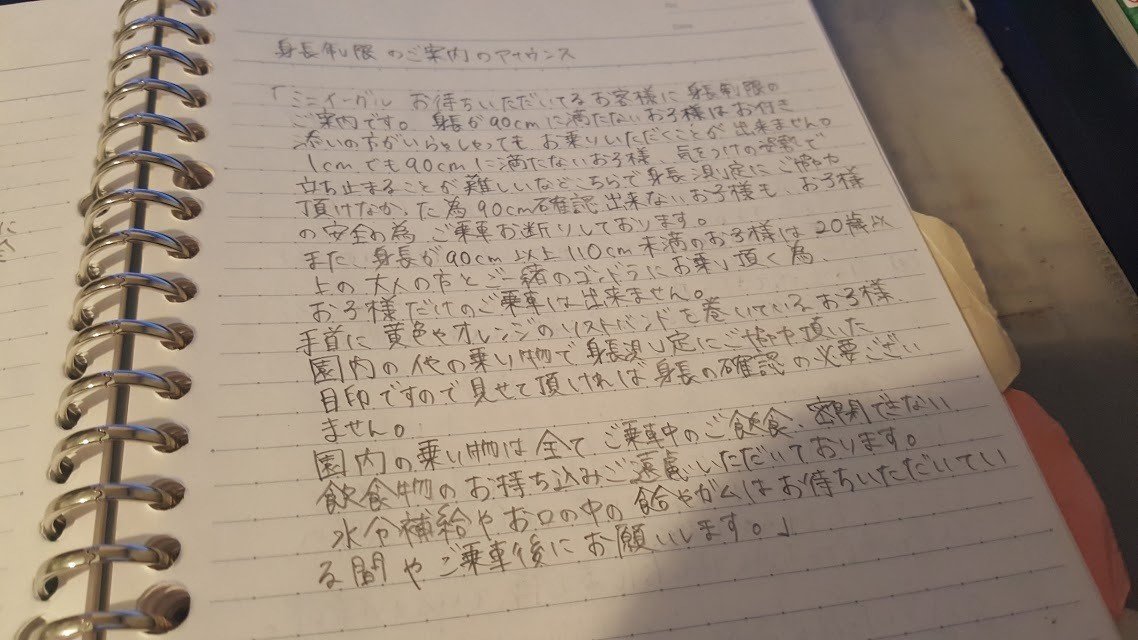 身長制限のご案内のアナウンス
「ミニイーグル お待ちいただいてるお客様に身長制限の
ご案内です。身長が90cmに満たないお子様はお付き
添いの方がいらっしゃってもお乗りいただくことが出来ません。
1cmでも90cmに満たないお子様、気をつけの姿勢で
立ち止まることが難しいなどこちらで身長測定にご協力
頂けなかった為90cm確認出来ないお子様も、お子様
の安全の為ご乗車お断りしております。
また、身長が90cm以上110cm未満のお子様は20歳以
上の大人の方とご一緒のゴンドラにお乗り頂く為、
お子様だけのご乗車は出来ません。
手首に黄色やオレンジのリストバンドを巻いているお子様、
園内の他の乗り物で身長測定にご協力頂いた
目印ですので見せて頂ければ身長の確認の必要ござい
ません。
園内の乗り物は全てご乗車中のご飲食、密閉できない
飲食物のお持ち込みご遠慮いただいております。
水分補給やお口の中の飴やガムはお待ちいただいてい
る間やご乗車後にお願いします。」